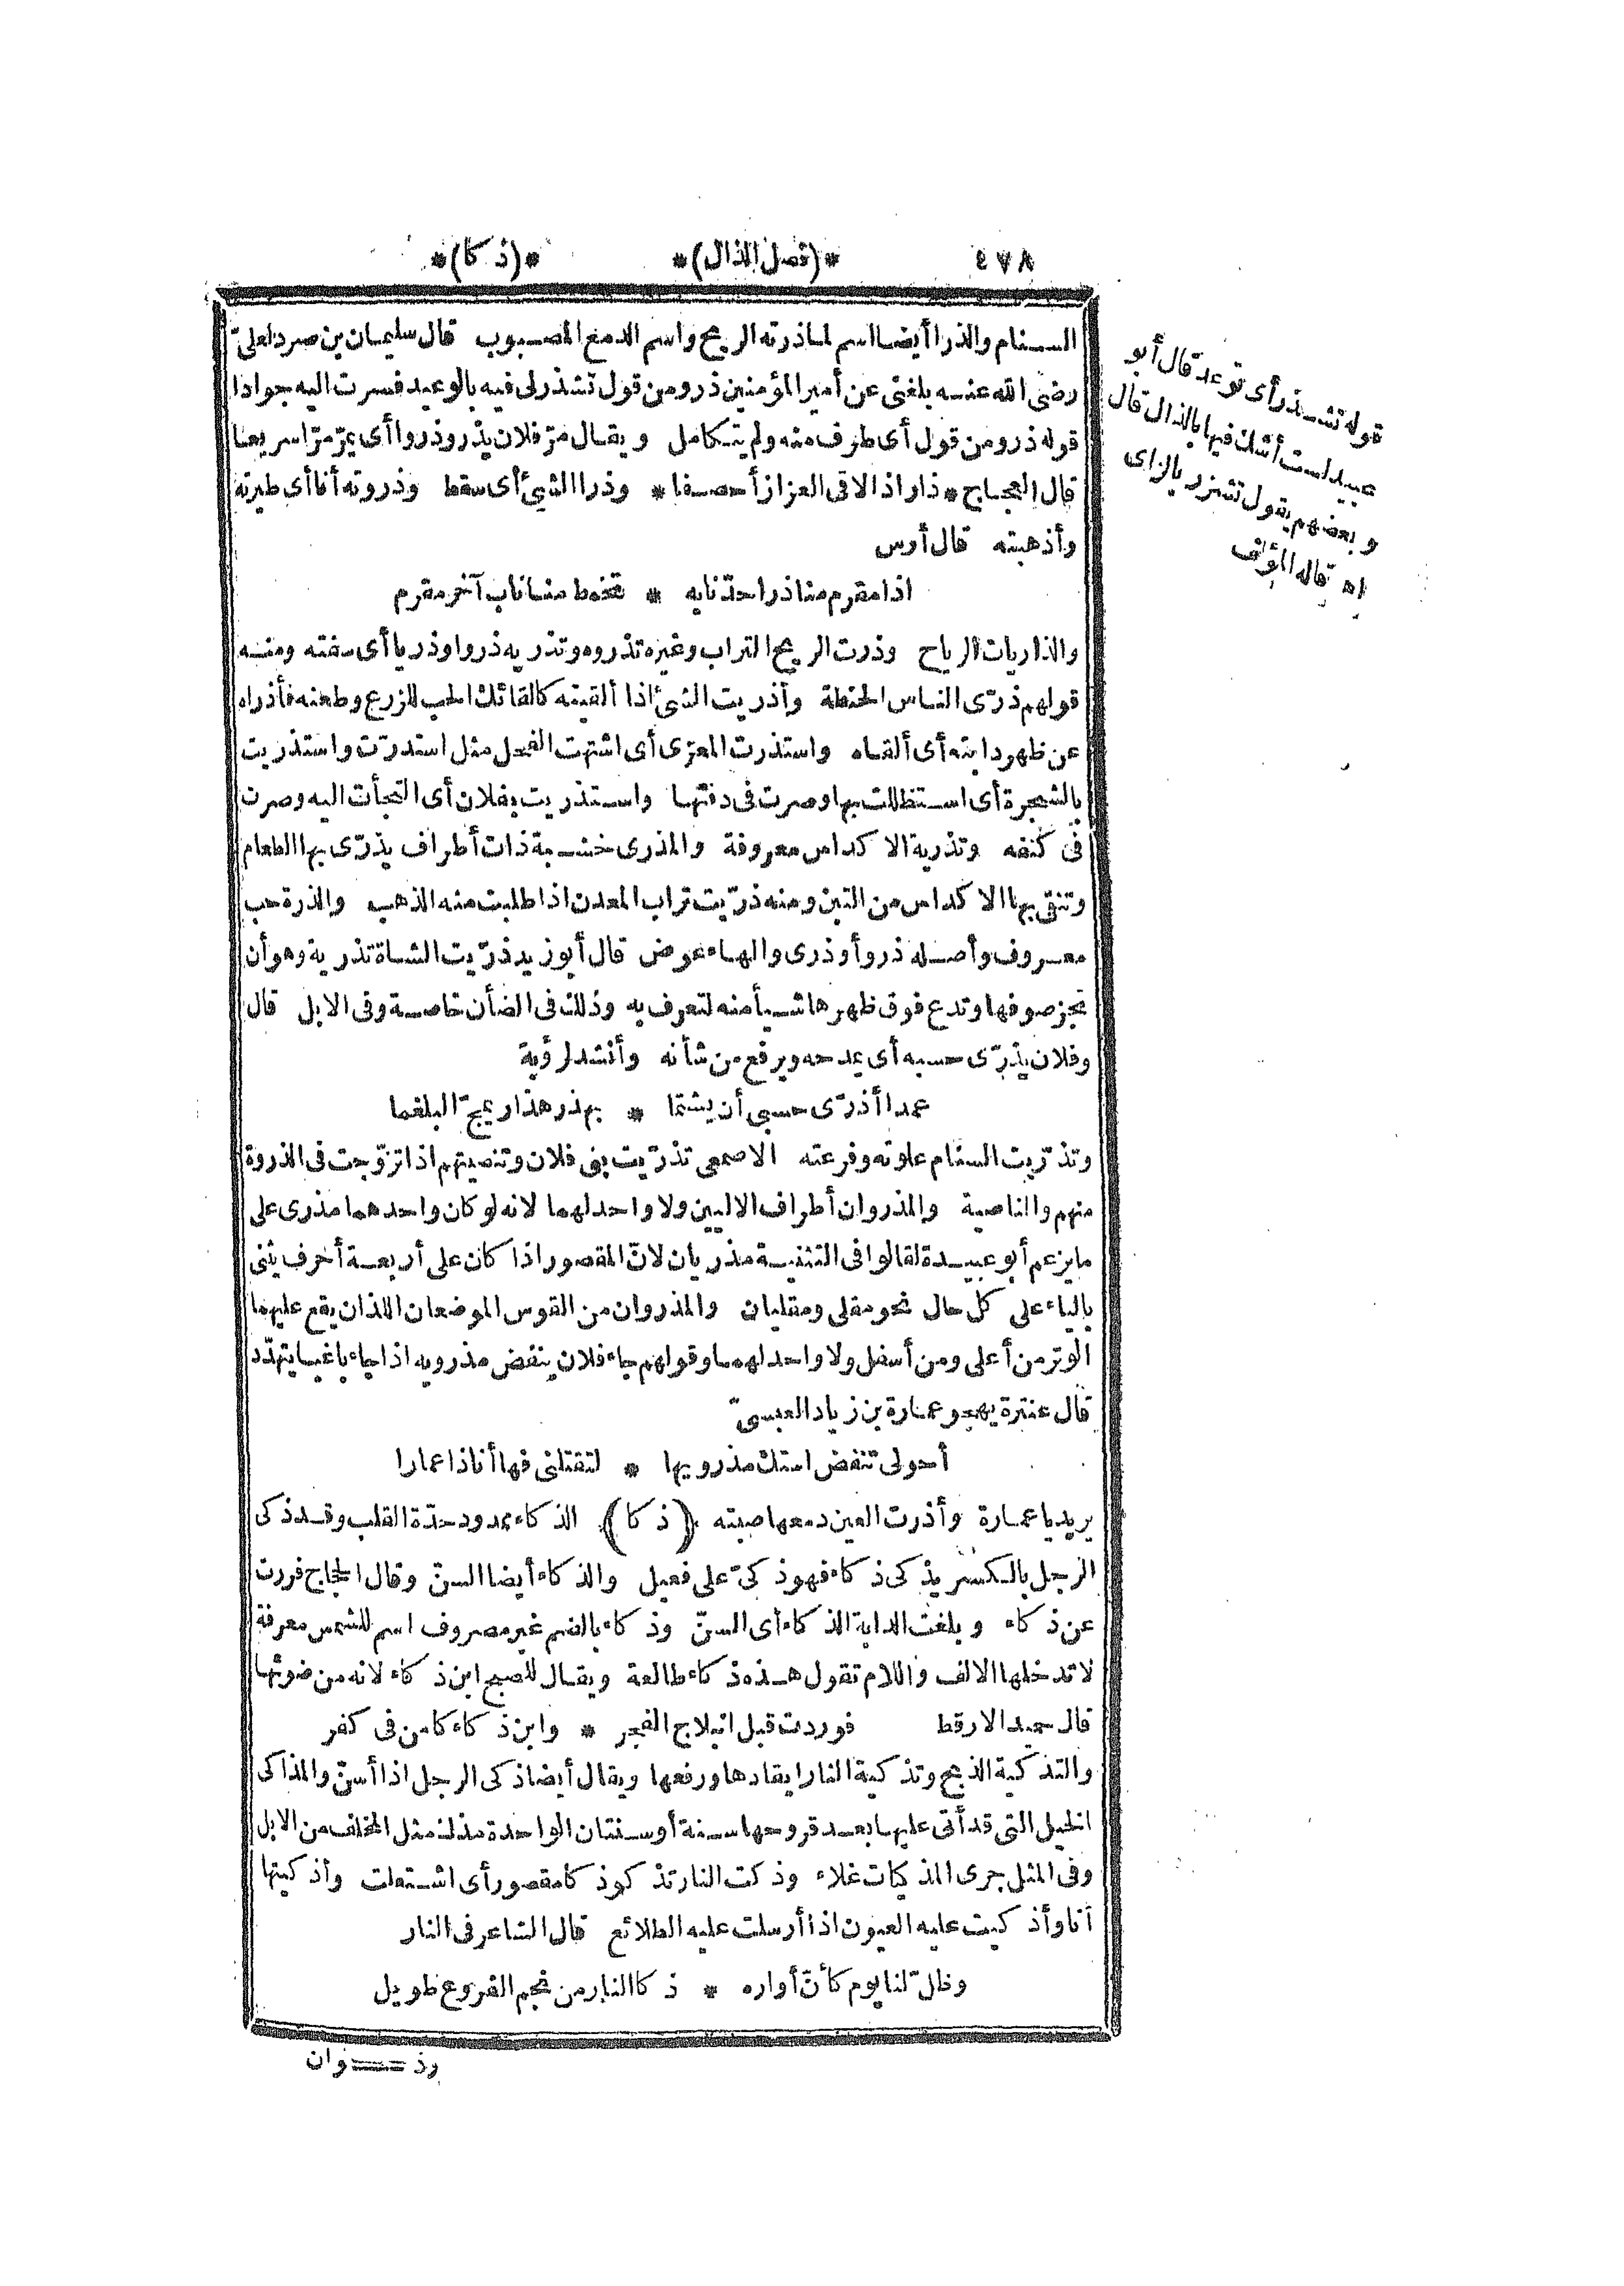 ٤٧٨
*(فصل الذال)*
*(ذكا)*
السنام والذرا أيضا اسم لما ذرته الريح واسم الدمع المصبوب قال سليمان بن صرد لعلىّ
رضى الله عنه بلغنى عن أمير المؤمنين ذرو من قول تشذر لى فيه بالوعيد فسرت اليه جوادا
قوله ذرو من قول أى طرف منه ولم يتكامل ويقال مرّ فلان يذرو ذروا أى يمرّ مرّا سريعا
قال العجاج * ذار اذا لاقى العزاز أحصفا * وذرا الشئ أى سقط وذروته أنا أى طيرته
وأذهبته قال أوس
اذا مقرم منا ذرا حدّ نابه * تخمط منا ناب آخر مقرم
والذاريات الرياح وذرت الريح التراب وغيره تذروه وتذريه ذروا وذريا أى سفته ومنه
قولهم ذرّى الناس الحنطة وأذريت الشئ اذا ألقيته كالقائك الحب للزرع وطعنه فأذراه
عن ظهر دابته أى ألقاه واستذرت المعزى أى اشتهت الفحل مثل استدرّت واستذريت
بالشجرة أى استظللت بها وصرت فى دفئها واستذريت بفلان أى التجأت اليه وصرت
فى كنفه وتذرية الاكداس معروفة والمذرى خشبة ذات أطراف يذرّى بها الطعام
وتنقى بها الاكداس من التبن ومنه ذرّيت تراب المعدن اذا طلبت منه الذهب والذرة حب
معروف وأصله ذرو أو ذرى والهاء عوض قال أبو زيد ذرّيت الشاة تذرية وهو أن
تجز صوفها وتدع فوق ظهرها شيأ منه لتعرف به وذلك فى الضأن خاصة وفى الابل قال
وفلان يذرّى حسبه أى يمدحه ويرفع من شأنه وأنشد لرؤبة
عمدا أذرّى حسبى أن يشتما * بهذر هذار يمجّ البلغما
وتذرّيت السنام علوته وفرعته الاصمعى تذرّيت بنى فلان وتنصيتهم اذا تزوّجت فى الذروة
منهم والناصية والمذروان أطراف الاليين ولا واحد لهما لانه لو كان واحدهما مذرى على
ما يزعم أبو عبيدة لقالوا فى التثنية مذريان لانّ المقصور اذا كان على أربعة أحرف يثنى
بالياء على كل حال نحو مقلى ومقليان والمذروان من القوس الموضعان اللذان يقع عليهما
الوتر من أعلى ومن أسفل ولا واحد لهما وقولهم جاء فلان ينفض مذرويه اذا جاء باغيا يتهدّد
قال عنترة يهجو عمارة بن زياد العبسىّ
أحولى تنفض استك مذرويها * لتقتلنى فها أنا ذا عمارا
يريد يا عمارة وأذرت العين دمعها صبته (ذكا) الذكاء ممدود حدّة القلب وقد ذكى
الرجل بالكسر يذكى ذكاء فهو ذكىّ على فعيل والذكاء أيضا السنّ وقال الحجاج فررت
عن ذكاء وبلغت الدابة الذكاء أى السنّ وذكاء بالضم غير مصروف اسم للشمس معرفة
لا تدخلها الالف واللام تقول هذه ذكاء طالعة ويقال للصبح ابن ذكاء لانه من ضوئها
قال حميد الارقط فوردت قبل انبلاج الفجر * وابن ذكاء كامن فى كفر
والتذكية الذبح وتذكية النار ايقادها ورفعها ويقال أيضا ذكى الرجل اذا أسنّ والمذاكى
الخيل التى قد أتى عليها بعد قروحها سنة أو سنتان الواحدة مذك مثل المخلف من الابل
وفى المثل جرى المذكيات غلاء وذكت النار تذكو ذكا مقصور أى اشتعلت وأذكيتها
أنا وأذكيت عليه العيون اذا أرسلت عليه الطلائع قال الشاعر فى النار
وظلّ لنا يوم كأنّ أواره * ذكا النار من نجم الفروغ طويل
وذوان
قوله تشذر أى توعد قال أبو
عبيد لست أشك فيها بالذال قال
وبعضهم يقول تشزر بالزاى
اه قاله المؤلف